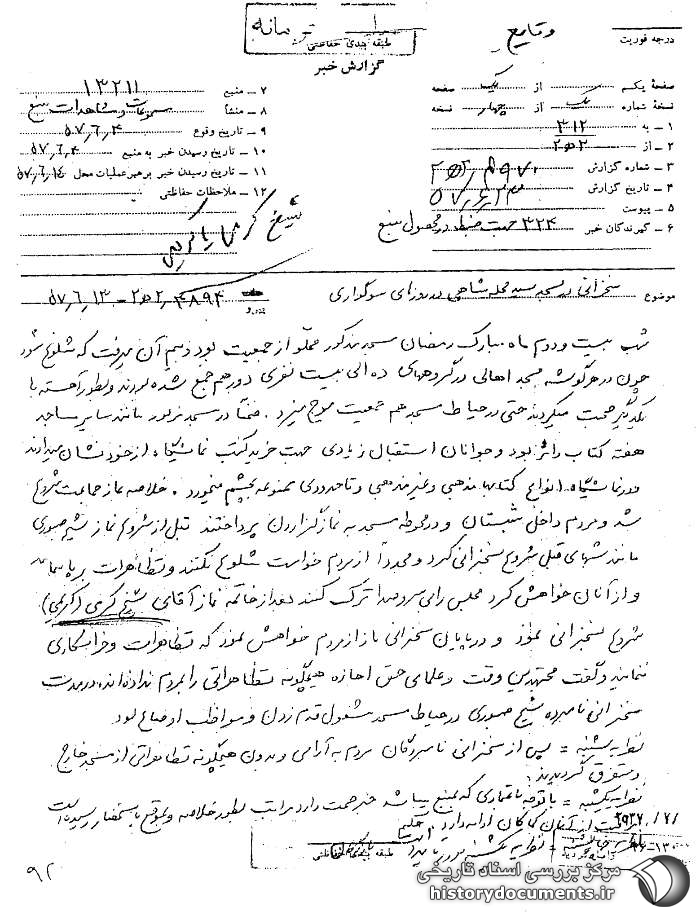 محرمانه
طبقه بندی حفاظتی
گزارش خبر
وقایع
درجه فوریت
صفحه یکم از یک صفحه
نسخه شماره یک از چهار نسخه
۱ - به ۳۱۲
۲ - از
۳ - شماره گزارش
۴ - تاریخ گزارش
۵ - پیوست
۶ - گیرندگان خبر ۳۲۴ جهت ضبط در محصول منبع
۷ - منبع ۱۳۲۱۱
۸ - منشأ مسموعات و مشاهدات منبع
۹ - تاریخ وقوع ۵۷,۶,۴
۱۰ - تاریخ رسیدن خبر به منبع ۵۷,۶,۴
۱۱ - تاریخ رسیدن خبر برهبر عملیات محل ۵۷,۶,۱۴
۱۲ - ملاحظات حفاظتی
شیخ کرمی یا کریمی
موضوع سخنرانی در مسجد سید محله شاهی در روزهای سوگواری
شب بیست و دوم ماه مبارک رمضان مسجد مذکور مملو از جمعیت بود و بیم آن میرفت که شلوغ شود
چون در هر گوشه مسجد اهالی در گروههای ده الی بیست نفری دور هم جمع شده بودند و بطور آهسته با
یکدیگر صحبت میکردند حتی در حیاط مسجد هم جمعیت موج میزد. ضمناً در مسجد مزبور مانند سایر مساجد
هفته کتاب دائر بود و جوانان استقبال زیادی جهت خرید کتب نمایشگاه از خود نشان میدادند
و در نمایشگاه انواع کتابها مذهبی و غیر مذهبی و تا حدودی ممنوعه بچشم میخورد. خلاصه نماز جماعت شروع
شد و مردم داخل شبستان و در محوطه مسجد به نماز گزاردن پرداختند قبل از شروع نماز شیخ صبوری
مانند شبهای قبل شروع بسخنرانی کرد و مجدداً از مردم خواست شلوغ نکنند و تظاهرات برپا ننمایند
و از آنان خواهش کرد مجلس را بی سر و صدا ترک کنند بعد از خاتمه نماز آقای شیخ کرمی (کریمی)
شروع بسخنرانی نمود و در پایان سخنرانی باز از مردم خواهش نمود که تظاهرات و خرابکاری
ننمایند و گفت مجتهدین وقت و علمای حق اجازه هیچگونه تظاهراتی را بمردم نداده‌اند. در مدت
سخنرانی نامبرده شیخ صبوری در حیاط مسجد مشغول قدم زدن و مواظب اوضاع بود
نظریه شنبه = پس از سخنرانی نامبردگان مردم به آرامی و بدون هیچگونه تظاهراتی از مسجد خارج
و متفرق گردیدند.
نظریه یکشنبه = با توجه باعتمادی که بمنبع میباشد خبر صحت دارد مراتب بطور خلاصه و بموقع باستحضار رسیده است
طبقه بندی حفاظتی
۹۲
مرکز بررسی اسناد تاریخی
historydocuments.ir